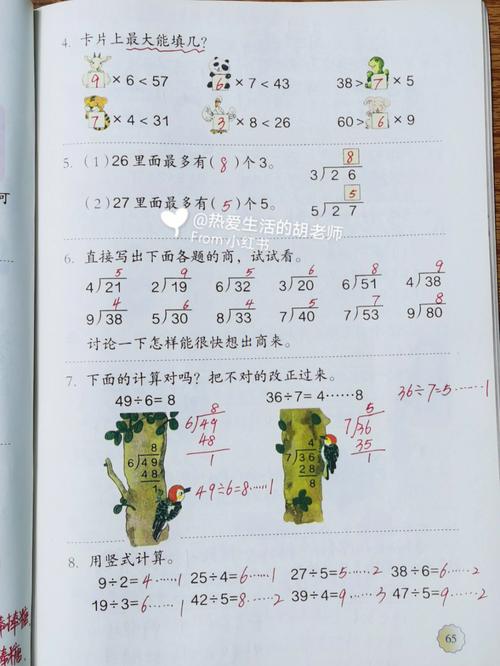 4. 卡片上最大能填几?
9 × 6 < 57 6 × 7 < 43 38 > 7 × 5
7 × 4 < 31 3 × 8 < 26 60 > 6 × 9
5. (1) 26 里面最多有( 8 )个 3。
8
3 26
(2) 27 里面最多有( 5 )个 5。
5
5 27
@热爱生活的胡老师
From 小红书
6. 直接写出下面各题的商，试试看。
5 9 5 6 8 9
4 21 2 19 6 32 3 20 6 51 4 38
4 6 4 5 7 8
9 38 5 30 8 33 7 40 7 53 9 80
讨论一下怎样能很快想出商来。
7. 下面的计算对吗? 把不对的改正过来。
49÷6=8 36÷7=4……8 36÷7=5……1
8
6 49
48
1
8
6 49
48
1
49÷6=8……1
4
7 36
28
8
5
7 36
35
1
8. 用竖式计算。
9÷2=4……1 25÷4=6……1 27÷5=5……2 38÷6=6……2
19÷3=6……1 42÷5=8……2 39÷4=9……3 47÷5=9……2
65